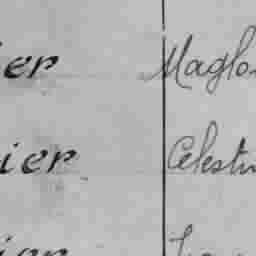 er Maglo
ier Celestin
ier